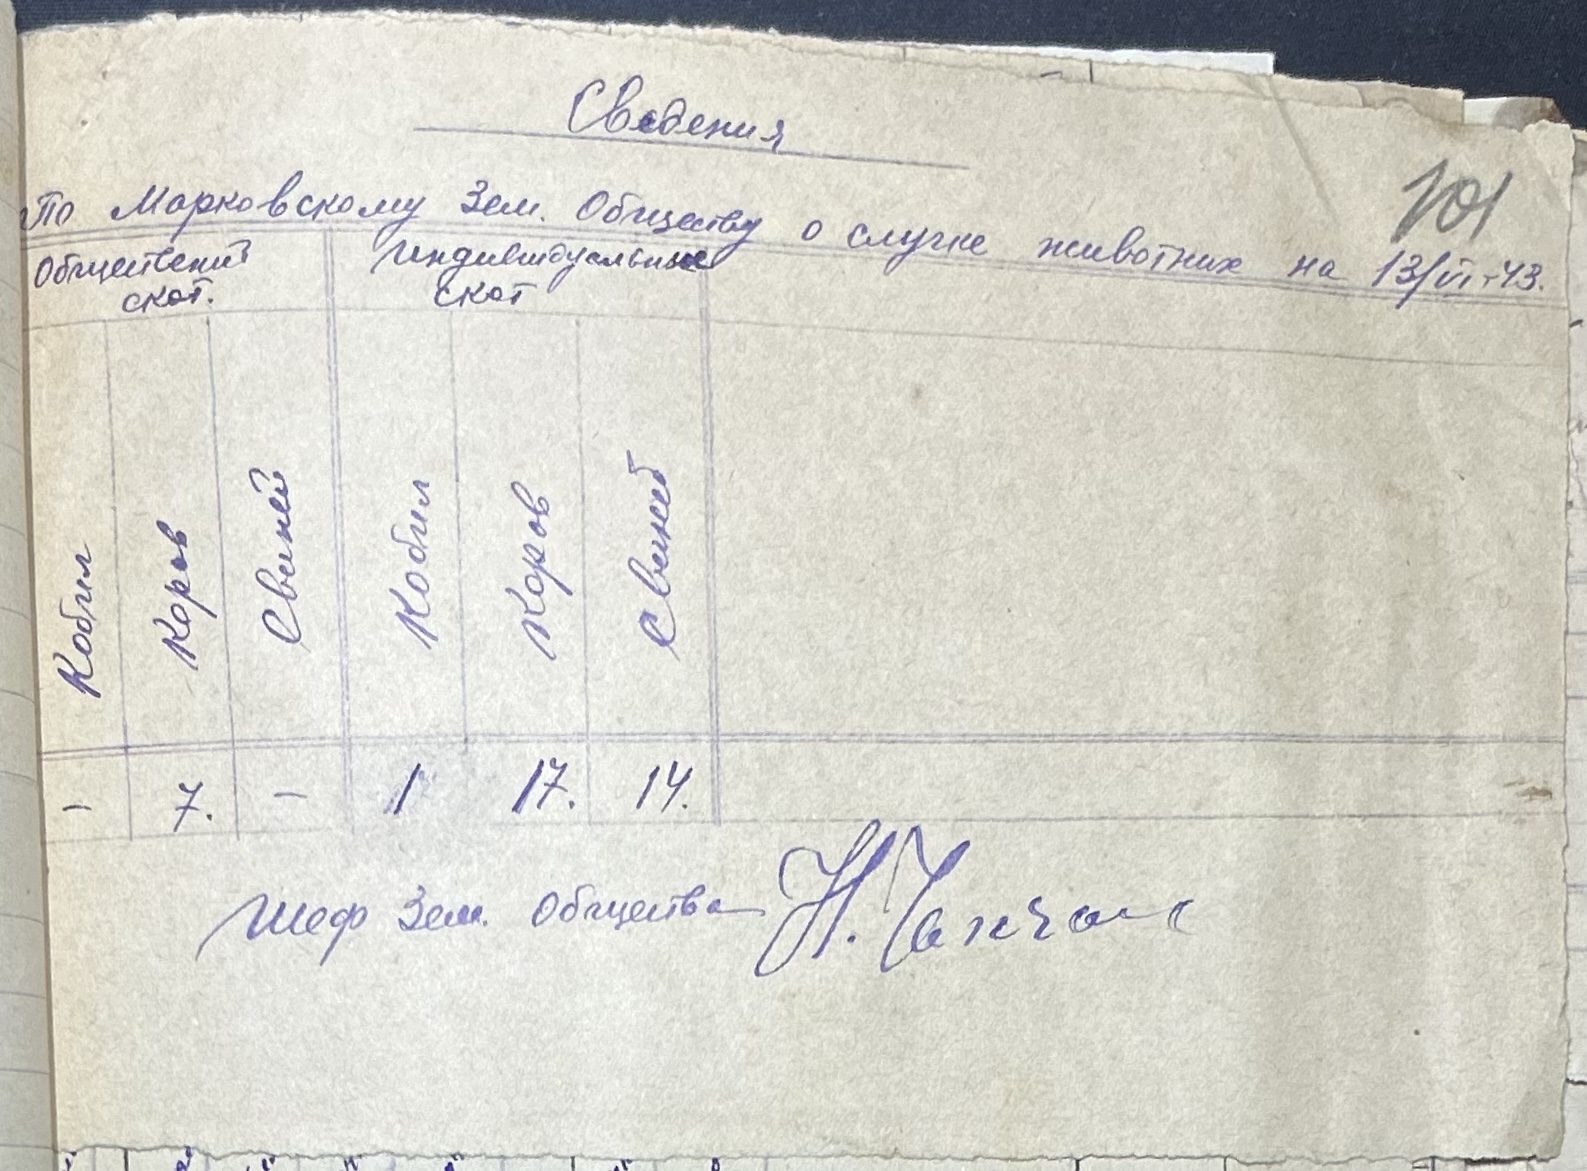 Сведения
101
По Марковскому Зем. Обществу о случке животних на 13/VI-43.
Обществений скот.
Индивидуальные скот
Кобил
Коров
Свиней
Кобил
Коров
Свиней
- 7. - 1 17. 14.
Шеф Зем. Общества Н.